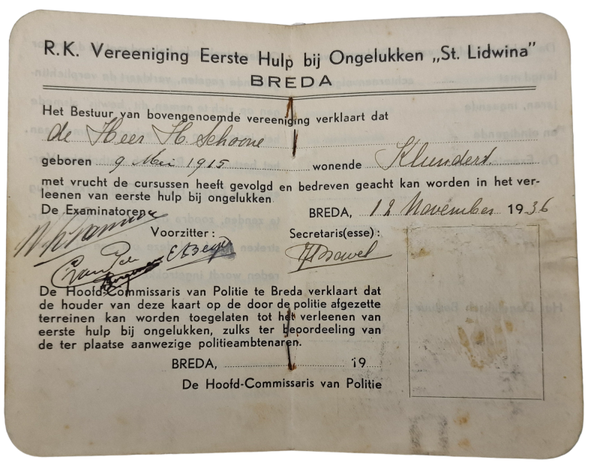 R.K. Vereeniging Eerste Hulp bij Ongelukken „St. Lidwina”
BREDA
Het Bestuur van bovengenoemde vereeniging verklaart dat
de Heer H. Schoone
geboren 9 Mei 1915 wonende Klundert
met vrucht de cursussen heeft gevolgd en bedreven geacht kan worden in het ver-
leenen van eerste hulp bij ongelukken
De Examinatoren, BREDA, 12 November 1936
Voorzitter: Secretaris(esse):
De Hoofd-Commissaris van Politie te Breda verklaart dat
de houder van deze kaart op de door de politie afgezette
terreinen kan worden toegelaten tot het verleenen van
eerste hulp bij ongelukken, zulks ter beoordeeling van
de ter plaatse aanwezige politieambtenaren.
BREDA, 19
De Hoofd-Commissaris van Politie